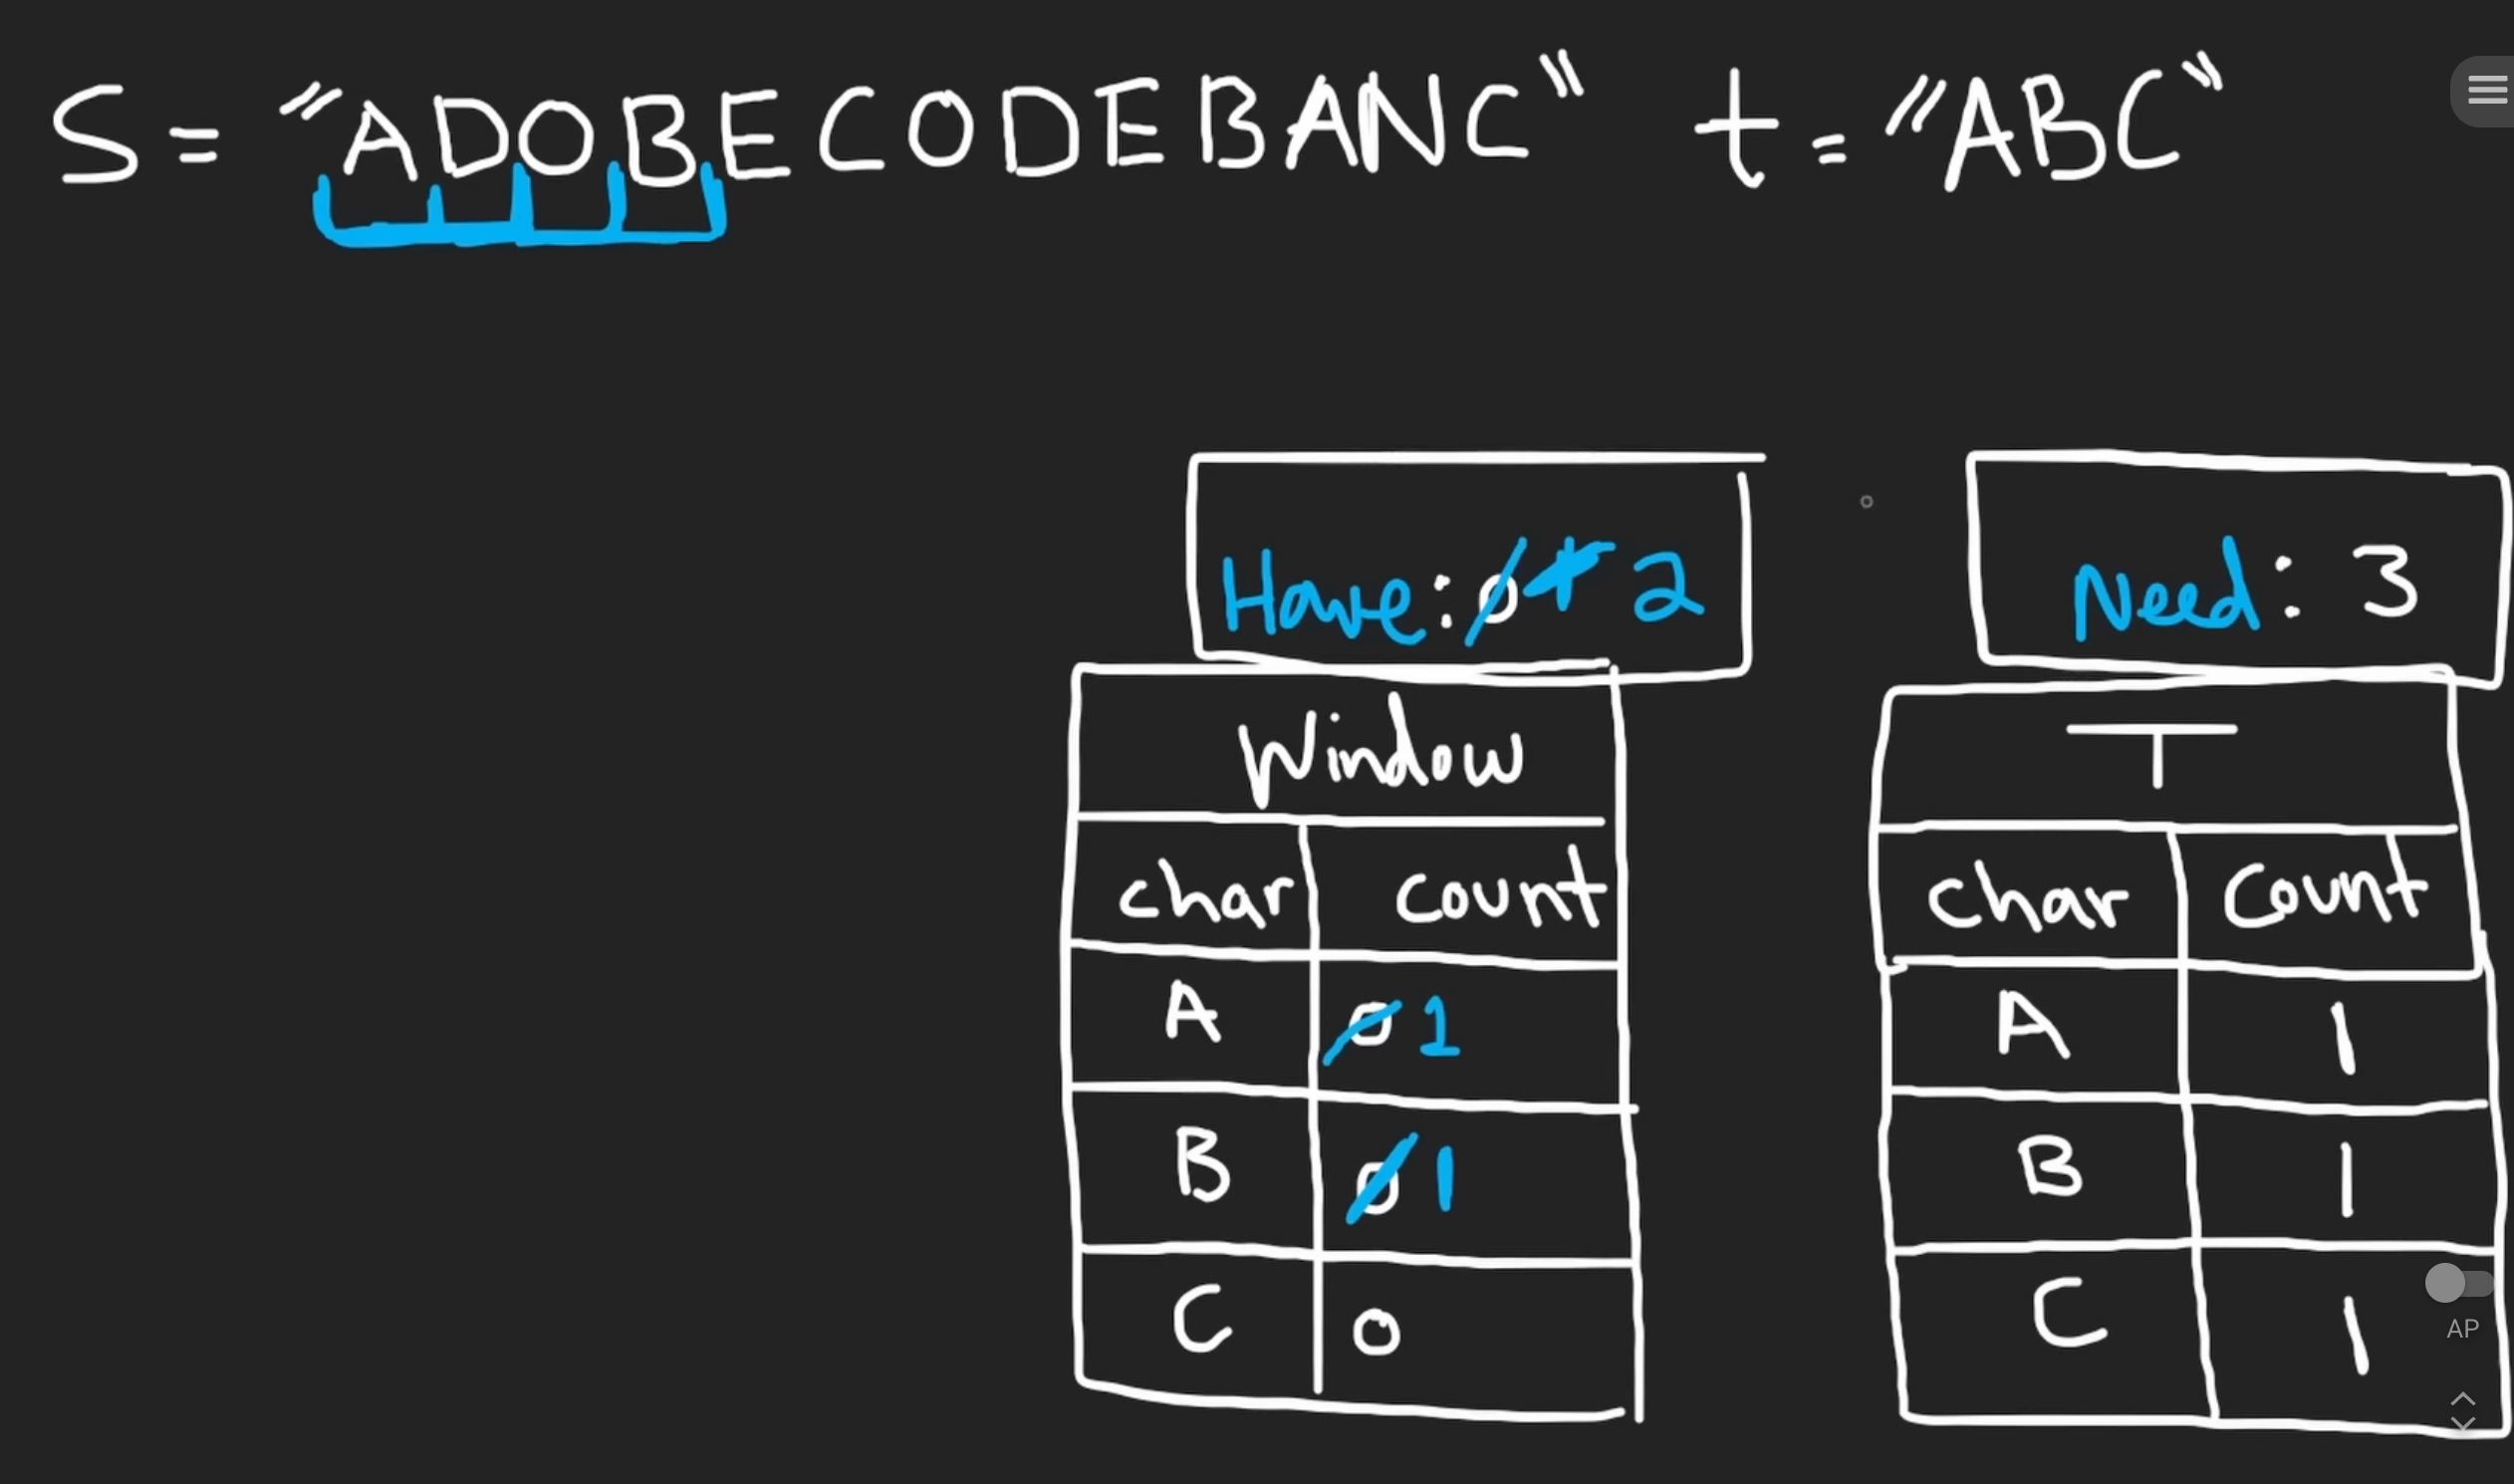 S = "ADOBECODEBANC" t = "ABC"
Have: 0 1 2
Need: 3
Window
char count
A 0 1
B 0 1
C 0
T
char count
A 1
B 1
C 1
AP